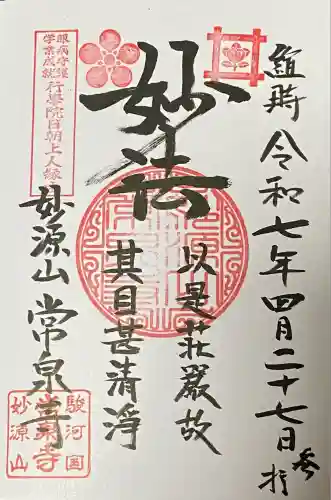 維時 令和七年四月二十七日 参拝
妙法
以是荘厳故
其目甚清淨
妙源山 常泉寺
眼病守護
学業成就
行學院日朝上人縁
駿河国
常泉寺
妙源山